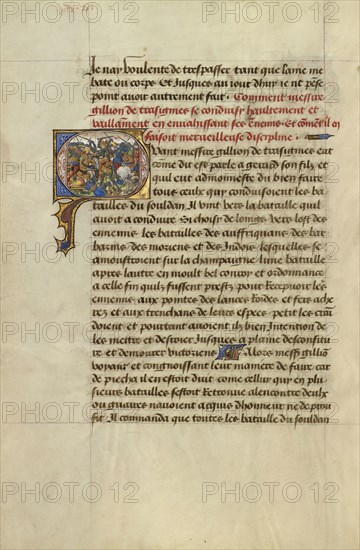 Je nay voulente de trespasser tant que lame me
bate ou corps. Et Jusques au iour dhuy ie ne pense
point avoir autrement fait. Comment messire
gillion de trasignies se conduisy haultement et
vaillamment en envaissant ses Enemis. Et comment il en
faisoit merveilleuse discipline.
Quant messire gillion de trasignies eut
comme dit est parle a gerard son filz et
quil eut admoneste du bien faire
tous ceulx qui conduisoient les ba
tailles du souldan. Il vint vers la bataille quil
avoit a conduire Si choisi de loings vers lost des
ennemis les batailles des auffriquans des bar
barins des moriens et des Indois lesquelles se
amoustroient sur la champaigne lune bataille
apres lautre en moult bel convoy et ordonnance
a celle fin quilz fussent prestz pour Recepvoir les
ennemis aux pointes des lances Roides et fers ache
rez et aux trenchans de leurs espees petit les crai
doient et pourtant avoient ilz bien Intention de
les mettre et destour Jusques a plaine desconfitu
re et demourer victoriens Allors messire gillion
voyant et congnoissant leur maniere de faire car
de piecha il en estoit duit come cellui qui en plu
sieurs batailles sestoit Retrouve alencontre deulx
ou gaires navoient acquis dhonneur ne de prou
fit Il commanda que toutes les bataille du souldan
PHOTO 12